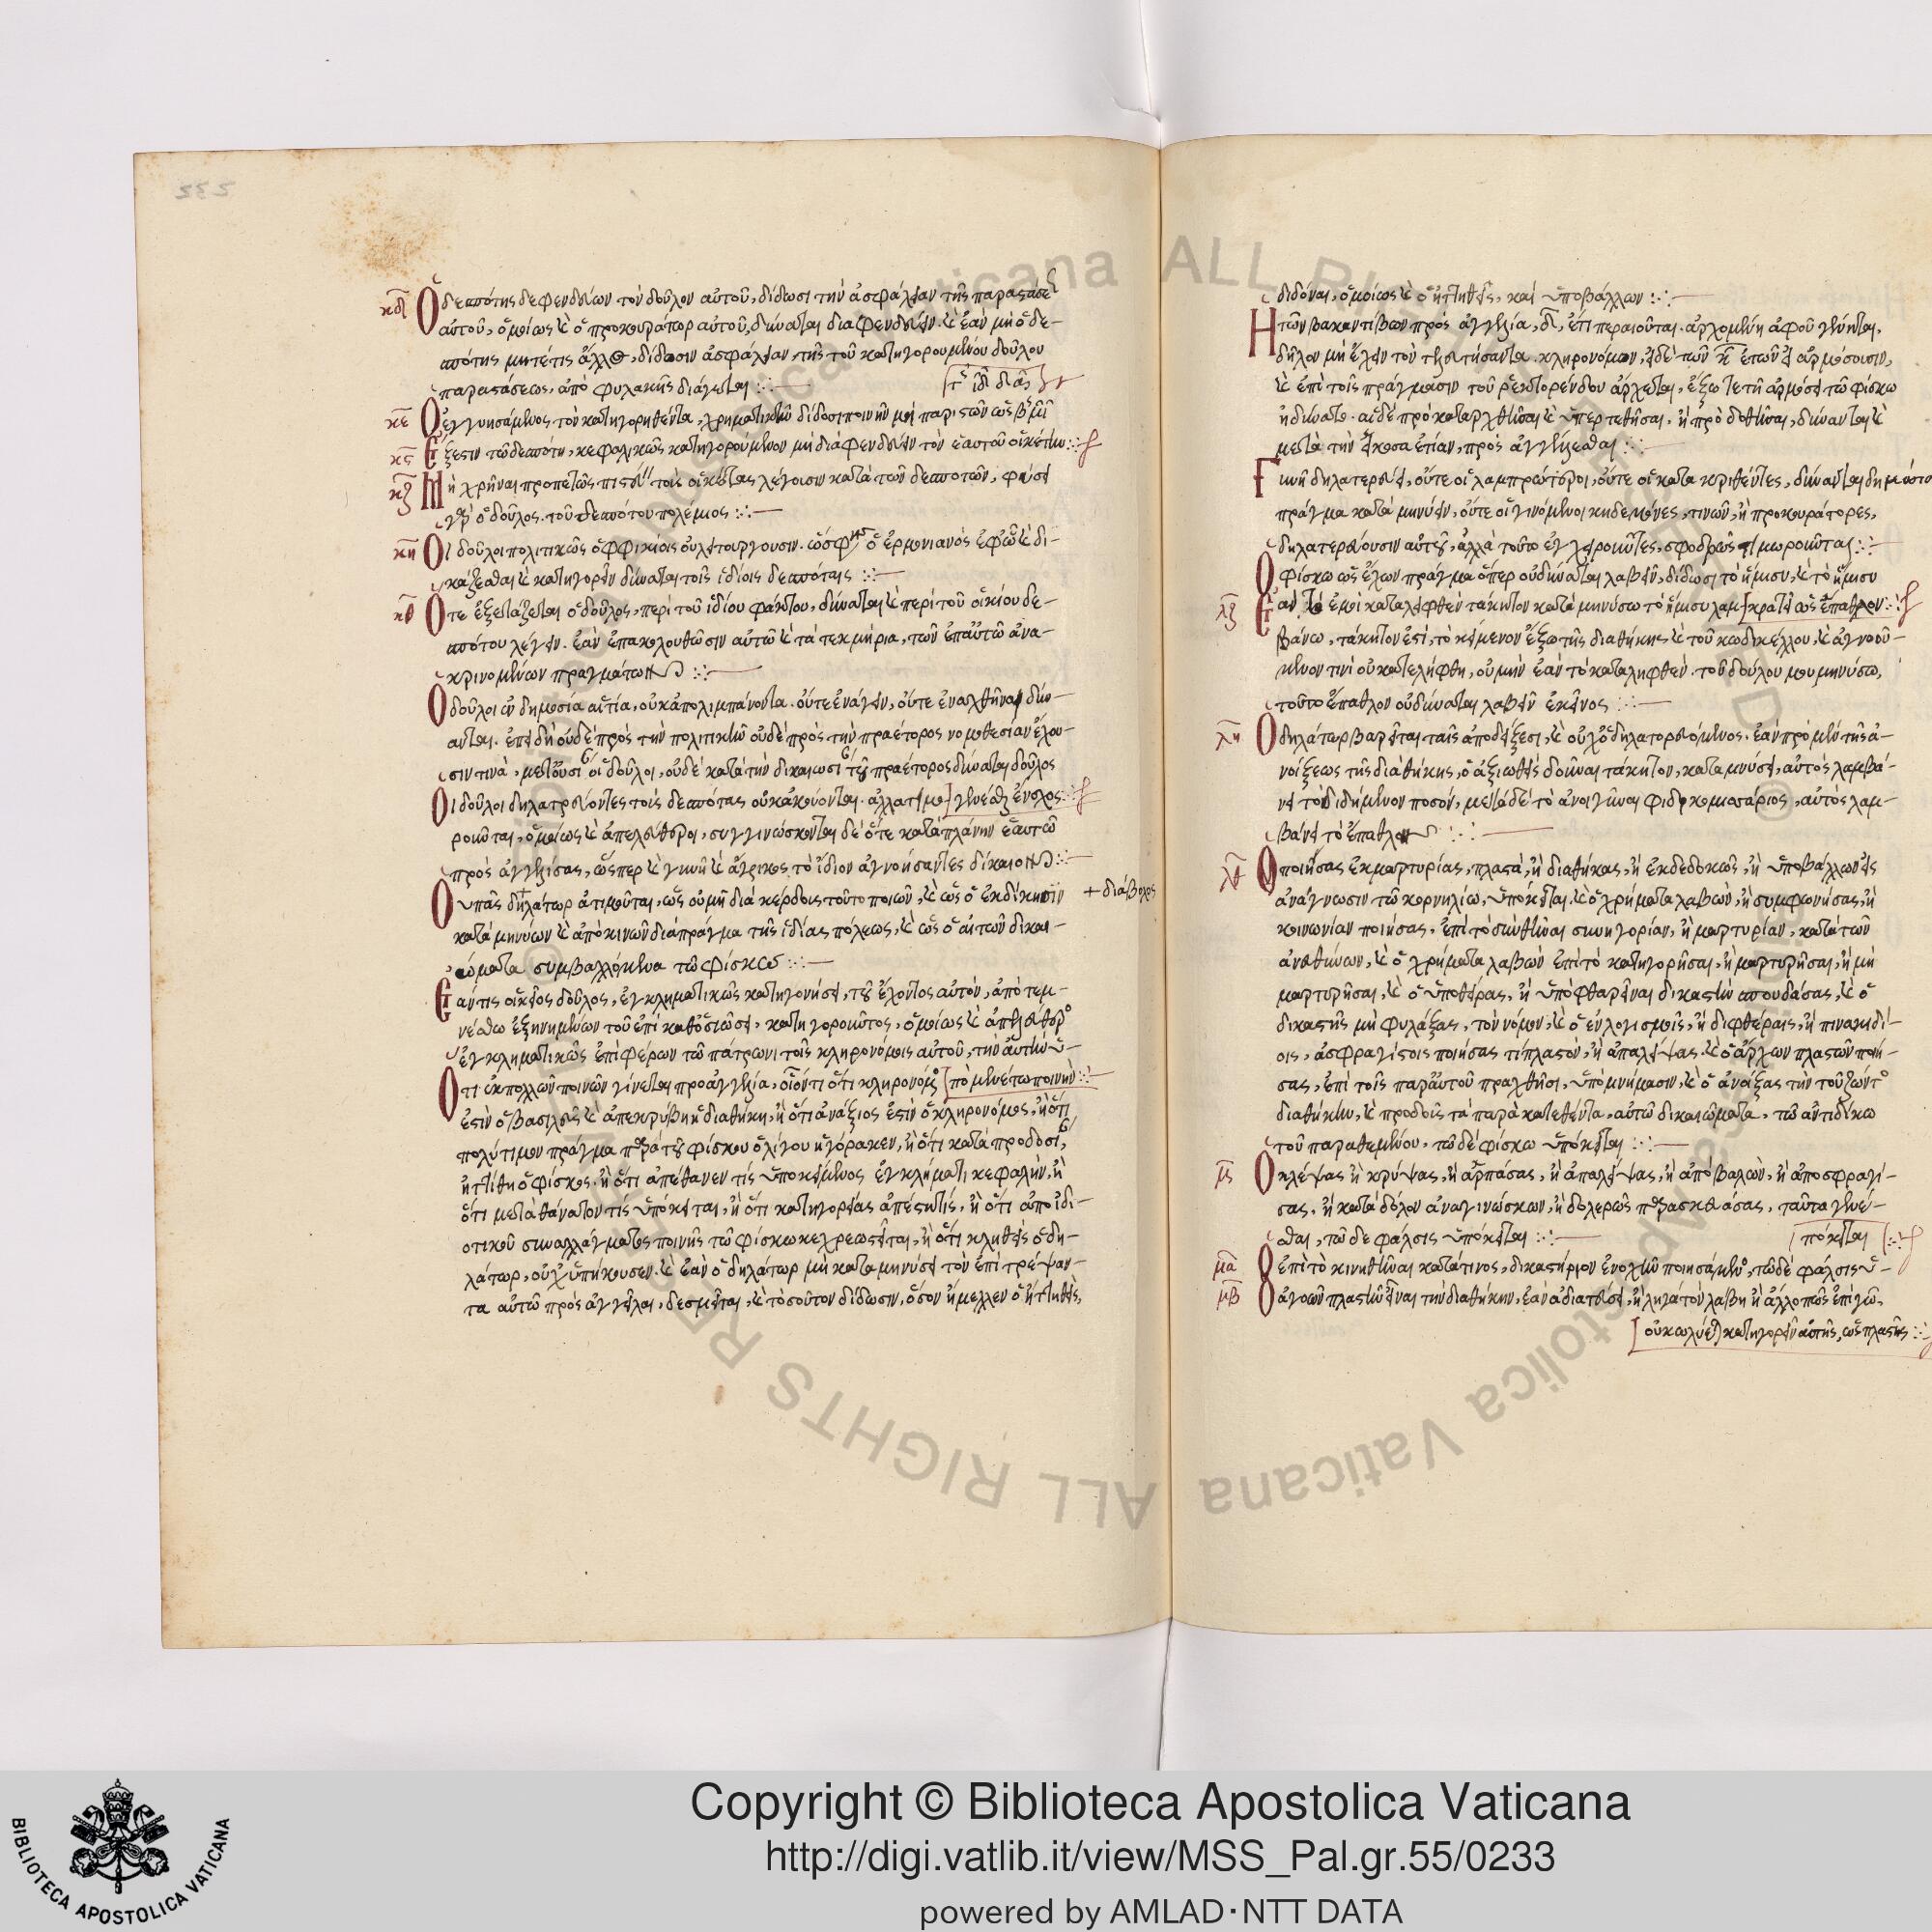 κδ Ὁ δεσπότης δεφενδεύων τὸν δοῦλον αὐτοῦ, δίδωσι τὴν ἀσφάλειαν τῆς παραστάσε
αὐτοῦ, ὁμοίως καὶ ὁ προκουράτωρ αὐτοῦ, δύναται διαφενδεύειν. καὶ ἐὰν μὴ ὁ δε-
σπότης μητέτις ἄλλος, δίδωσιν ἀσφάλειαν, τῆς τοῦ κατηγορουμένου δούλου
παραστάσεως, ἀπὸ φυλακῆς διάγεται
κε Ὁ ἐγγυησάμενος τὸν κατηγορηθέντα, χρηματικὴν δίδοσι ποινὴν μὴ παριστῶν
κϛ Ἔξεστιν τῶ δεσπότη, κεφαλικῶς κατηγορούμενον μὴ διαφενδεύειν τὸν ἑαυτοῦ οἰκέτην
κζ Μὴ χρῆναι προπετῶς τοῖς οἰκέταις λέγουσιν κατὰ τῶν δεσποτῶν, φύσει
γὰρ ὁ δοῦλος τοῦ δεσπότου πολέμιος
κη Οἱ δοῦλοι πολιτικῶς ὀφφικίοις οὐ λειτουργοῦσιν. ὁ ἑρμονιανὸς ἐφῶ καὶ δι-
κάζεσθαι καὶ κατηγορεῖν δύναται τοῖς ἰδίοις δεσπόταις
κθ Ὅτε ἐξετάζεται ὁ δοῦλος, περὶ τοῦ ἰδίου φάκτου, δύναται καὶ περὶ τοῦ οἰκίου δε-
σπότου λέγειν. ἐὰν ἐπακολουθῶσιν αὐτῶ καὶ τὰ τεκμήρια, τῶν ἐπαὐτῶ ἀνα-
κρινομένων πραγμάτων
Ὁ δοῦλοι ἐν δημοσία αἰτία, οὐκ ἀπολιμπάνονται. οὔτε ἐνάγειν, οὔτε ἐναχθῆναι δύν-
ανται. ἐπειδὴ οὐδὲ πρὸς τὴν πολιτικὴν οὐδὲ πρὸς τὴν πραέτορος νομοθεσίαν ἔχου-
σιν τινὰ, οἱ δοῦλοι, οὐδὲ κατὰ τὴν δικαιωσι τοῦ πραέτορος δύναται δοῦλος
γενέσθαι ἔνοχος
Οἱ δοῦλοι δηλατρεύοντες τοὺς δεσπότας οὐκ ἀκούονται. ἀλλα τιμω-
ροῦνται, ὁμοίως καὶ ἀπελεύθεροι, συγγινώσκονται δὲ ὅτε κατὰ πλάνην ἑαυτῶ
προσἀγγείσας, ὥσπερ καὶ γυνὴ καὶ ἄγρικος τὸ ἴδιον ἀγνοήσαντες δίκαιον
Ὁ ὑπᾶς δηλάτωρ ἀτιμοῦται, ὡς οὐ μὴ διὰ κέρδους τοῦτο ποιῶν, καὶ ὡς ὁ ἐκδίκησιν
+ διάβολος
καταμηνύων καὶ ἀποκινῶν διὰ πρᾶγμα τῆς ἰδίας πόλεως, καὶ ὡς ὁ αἰτῶν δικαι-
ώματα συμβαλλόμενα τῶ φίσκω
Ἐάν τις οἰκεῖος δοῦλος, ἐγκληματικῶς κατηγορήσει, τοῦ ἔχοντος αὐτὸν, ἀποτεμ-
νέσθω ἐξηνημένων τοῦ ἐπὶ καθοσιώσει, κατηγοροῦντος, ὁμοίως καὶ ἀπελεύθερος
ἐγκληματικῶς ἐπιφέρων τῶ πάτρωνι τοῖς κληρονόμοις αὐτοῦ, τὴν αὐτὴν ὑ-
πομενέτω ποινήν
Ὅτι ἐκ πολλῶν ποινῶν γίνεται προσἀγγελία, οἱονότι ὅτι κληρονόμος
ἐστὶν ὁ βασιλεὺς καὶ ἀπεκρύβη ἡ διαθήκη, ἢ ὅτι ἀνάξιος ἐστὶν ὁ κληρονόμος, ἢ ὅτι
πολύτιμον πρᾶγμα παρὰ τοῦ φίσκου ὀλίγου ἠγόρακεν, ἢ ὅτι κατὰ προδοσι,
ἡττήθη ὁ φίσκος. ἢ ὅτι ἀπέθανεν τίς ὑποκείμενος ἐγκλήματι κεφαλὴν, ἢ
ὅτι μετὰ θάνατον τίς ὑπόκειται, ἢ ὅτι κατηγορίας ἀπέστη τίς, ἢ ὅτι ἀπὸ ἰδι-
οτικοῦ συναλλάγματος ποινῆς τῶ φίσκω κεχρεώστηται, ἢ ὅτι κληθεὶς ὁ δη-
λάτωρ, οὐχ ὑπήκουσεν. καὶ ἐὰν ὁ δηλάτωρ μὴ καταμηνύσει τὸν ἐπιτρέψαν-
τα αὐτῶ προσἀγγεῖλαι, δεσμεῖται, καὶ τοσοῦτον δίδωσιν, ὅσον ἤμελλεν ὁ ἡττηθεὶς,
διδόναι, ὁμοίως καὶ ὁ ἡττηθεὶς, καὶ ὑποβάλλων
Ἡ τῶν βακαντίβων προσἀγγελία, δ, ἔτι περαιοῦται. ἀρχομένη ἀφοῦ γένηται,
δῆλον μὴ ἔχειν τὸν τελευτήσαντα κληρονόμον, ἡ δὲ τῶν κ ἐτῶν ἁρμόσουσιν,
καὶ ἐπὶ τοῖς πράγμασιν τοῦ ἄρχεται, ἐξωτετη ἁρμόσει τῶ φίσκω
ἠδύνατο. αἱ δὲ προκαταρχθεῖσαι καὶ ὑπερτεθῆσαι, ἢ προδοθεῖσαι, δύνανται καὶ
μετὰ τὴν εἰκοσαετίαν, προσἀγγέλλεσθαι
Γυνὴ δηλατερεύει, οὔτε οἱ λαμπρώτεροι, οὔτε οἱ κατακριθέντες, δύνανται δημόσιον
πρᾶγμα καταμηνύειν, οὔτε οἱ γινόμενοι κηδεμόνες, τινῶν, ἢ προκουράτορες,
δηλατερεύουσιν αὐτοῦ, ἀλλὰ τοῦτο ἐγχειροῦντες, σφοδρῶς τιμωροῦνται
Ὁ φίσκω ὡς ἔχων πρᾶγμα ὅπερ οὐ δύναται λαβεῖν, δίδωσι τὸ ἥμισυ, καὶ τὸ ἥμισυ
κρατεῖ ὡς ἔπαθλον
λζ Ἐὰν τὸ ἐμοὶ καταλειφθὲν τάκιτον καταμηνύσω τὸ ἥμισυ λαμ-
βάνω, τάκιτον ἐστὶ, τὸ κείμενον ἔξω τῆς διαθήκης καὶ τοῦ κωδικέλλου, καὶ ἀγνοού-
μενον τινὶ οὐ κατελήφθη, οὐ μὴν ἐὰν τὸ καταληφθὲν τοῦ δούλου μου μηνύσω,
τοῦτο ἔπαθλον οὐ δύναται λαβεῖν ἐκεῖνος
λη Ὁ δηλάτωρ βαρεῖται ταῖς ἀποδείξεσι, καὶ οὐχ ὁ δηλατορευόμενος. ἐὰν πρὸ μὲν τῆς ἀ-
νοίξεως τῆς διαθήκης, ὁ ἀξιωθεὶς δοῦναι τάκιτον, καταμηνύσει, αὐτὸς λαμβά-
νει τὸ διδήμενον ποσόν, μετὰ δὲ τὸ ἀνοιγῆναι φιδικομισάριος, αὐτὸς λαμ-
βάνει τὸ ἔπαθλον
λθ Ὁ ποιήσας ἐκμαρτυρίας, πλαστὰ, ἢ διαθήκας, ἢ ἐκδεδοκὼς, ἢ ὑποβάλλων εἰς
ἀνάγνωσιν τῶ κορνηλίω, ὑπόκειται. καὶ ὁ χρήματα λαβὼν, ἢ συμφωνήσας, ἢ
κοινωνίαν ποιήσας, ἐπὶ τὸ συνθεῖναι συνηγορίαν, ἢ μαρτυρίαν, κατὰ τῶν
ἀνευθύνων, καὶ ὁ χρήματα λαβὼν ἐπὶ τὸ κατηγορῆσαι, ἢ μαρτυρῆσαι, ἢ μὴ
μαρτυρῆσαι, καὶ ὁ ὑποθείρας, ἢ ὑποφθαρῆναι δικαστὴν σπουδάσας, καὶ ὁ
δικαστὴς μὴ φυλάξας, τὸν νόμον, καὶ ὁ ἐν λογισμοῖς, ἢ διφθέραις, ἢ πινακιδί-
οις, ἀσφραγίστοις ποιήσας τί πλαστὸν, ἢ ἀπαλείψας. καὶ ὁ ἄρχων πλαστῶν ποιή-
σας, ἐπὶ τοῖς παραὐτοῦ πραχθεῖσι, ὑπομνήμασιν, καὶ ὁ ἀνοίξας τὴν τοῦ ζῶντος
διαθήκην, καὶ προδοὺς τὰ παρακατεθέντα, αὐτῶ δικαιώματα, τῶ ἀντιδίκω
τοῦ παραθεμένου, τῶ δὲ φίσκω ὑπόκειται
μ Ὁ κλέψας ἢ κρύψας, ἢ ἁρπάσας, ἢ ἀπαλείψας, ἢ ἀποβαλὼν, ἢ ἀποσφραγί-
σας, ἢ κατὰ δόλον ἀναγινώσκων, ἢ δολερῶς παρασκευάσας, ταῦτα γενέ-
σθαι, τῶ δε φάλσις ὑπόκειται
πόκειται
μα Ὁ ἐπὶ τὸ κινηθῆναι κατάτινος, δικαστήριον ἐνοχὴν ποιησάμενος, τῶ δὲ φάλσις ὑ-
μβ Ὁ ἀγνοῶν πλαστὴν εἶναι τὴν διαθήκην, ἐὰν ἢ ληγάτον λάβη ἢ ἄλλο πῶς ἐπιγῶ,
οὐ κωλύεται κατηγορεῖν αὐτῆς, ὡς πλαστῆς
Copyright © Biblioteca Apostolica Vaticana
http://digi.vatlib.it/view/MSS_Pal.gr.55/0233
powered by AMLAD·NTT DATA
BIBLIOTECA APOSTOLICA VATICANA